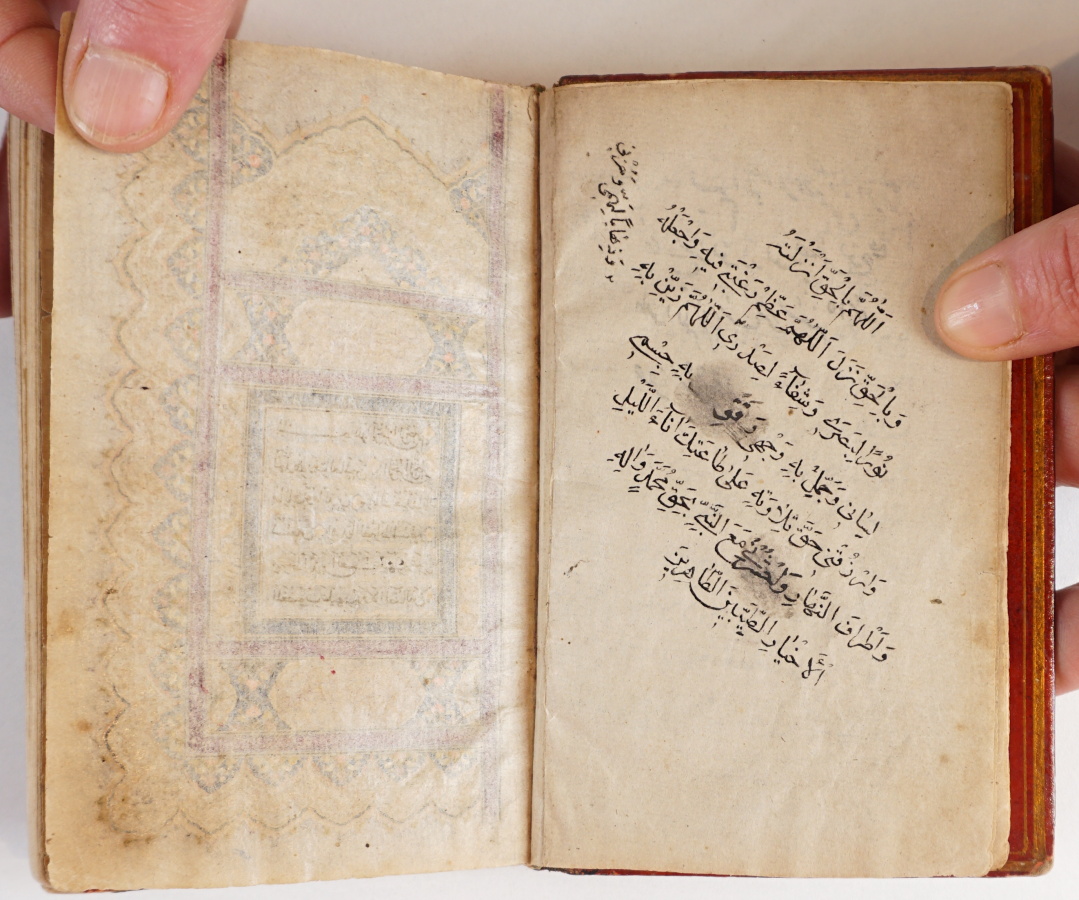 اَللّٰهُمَّ بِالْحَقِّ اَنْزَلْتَهُ
وَبِالْحَقِّ نَزَلَ اَللّٰهُمَّ عَظِّمْ رَغْبَتِي فِيهِ وَاجْعَلْهُ
نُورًا لِبَصَرِي وَشِفَآءً لِصَدْرِي اَللّٰهُمَّ زَيِّنْ بِهِ
لِسَانِي وَجَمِّلْ بِهِ وَجْهِي وَقَوِّ بِهِ جِسْمِي
وَارْزُقْنِي حَقَّ تِلَاوَتِهِ عَلٰى طَاعَتِكَ اٰنَآءَ اللَّيْلِ
وَاَطْرَافَ النَّهَارِ وَاحْشُرْنِي مَعَ النَّبِيِّ بِحَقِّ مُحَمَّدٍ وَاٰلِهِ
الْاَخْيَارِ الطَّيِّبِينَ الطَّاهِرِينَ
وَذِهَابًا لِهَمِّي وَحُزْنِي